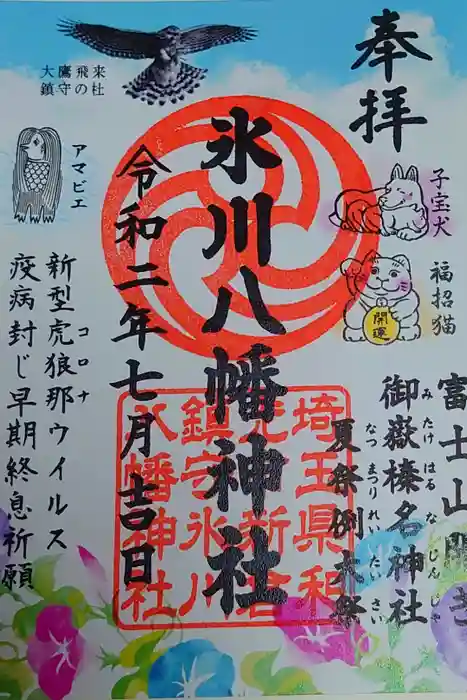 奉拝
子宝犬
福招猫
開運
富士山開き
御嶽榛名神社
みたけはるなじんじゃ
夏祭例大祭
なつまつりれいたいさい
氷川八幡神社
埼玉県和
光新倉
鎮守氷川
八幡神社
令和二年七月吉日
大鷹飛来
鎮守の杜
アマビエ
新型虎狼那ウイルス
コロナ
疫病封じ早期終息祈願